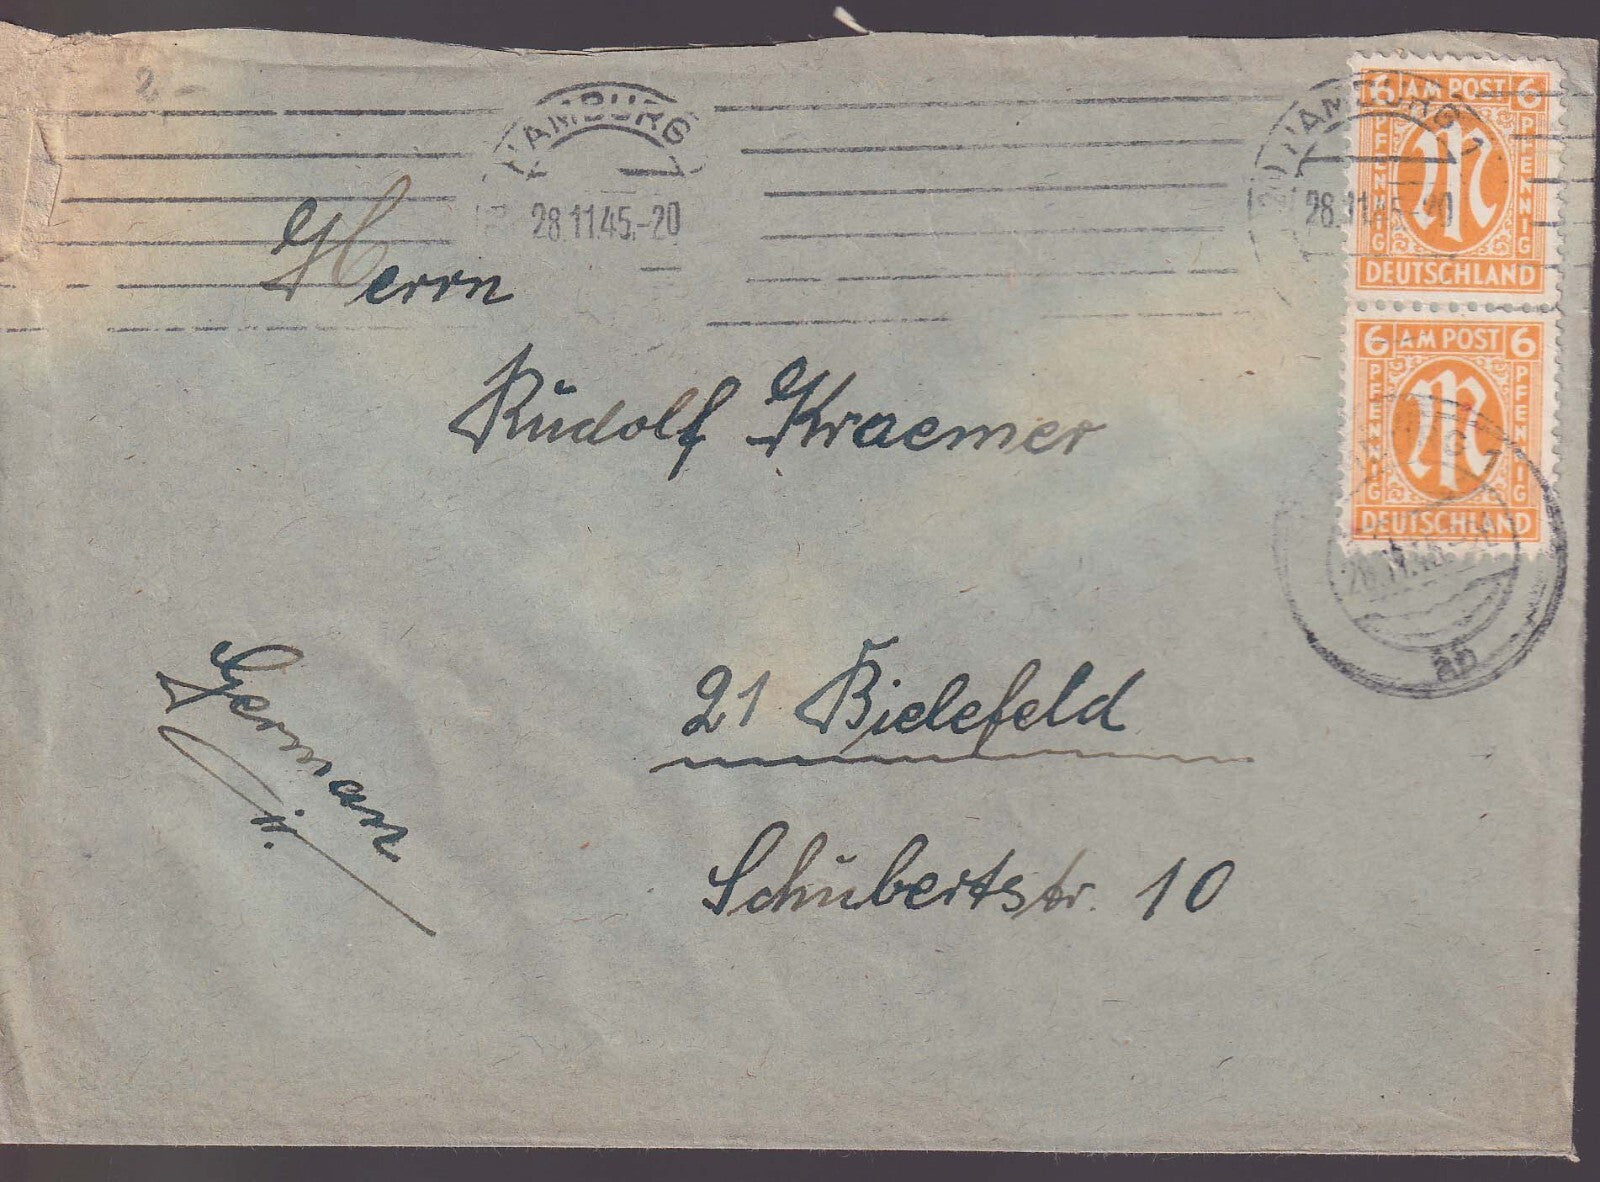 2.-
HAMBURG
1
28.11.45.-20
HAMBURG
1
28.11.45.-20
6 AM POST 6
PFENNIG
PFENNIG
DEUTSCHLAND
6 AM POST 6
PFENNIG
PFENNIG
DEUTSCHLAND
ab
Herrn
Rŭdolf Kraemer
German
21 Bielefeld
Schŭbertstr. 10